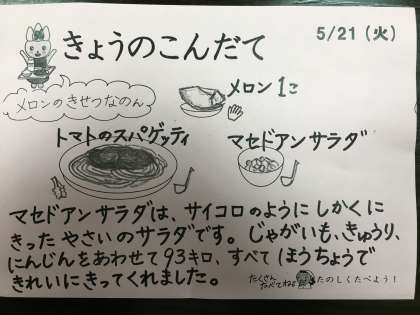 5/21（火）
きょうのこんだて
メロンのきせつなのん
メロン1こ
トマトのスパゲッティ
マセドアンサラダ
マセドアンサラダは、サイコロのようにしかくに
きったやさいのサラダです。じゃがいも、きゅうり、
にんじんをあわせて93キロ、すべてほうちょうで
きれいにきってくれました。
たくさん
たべてねぇ
たのしくたべよう！